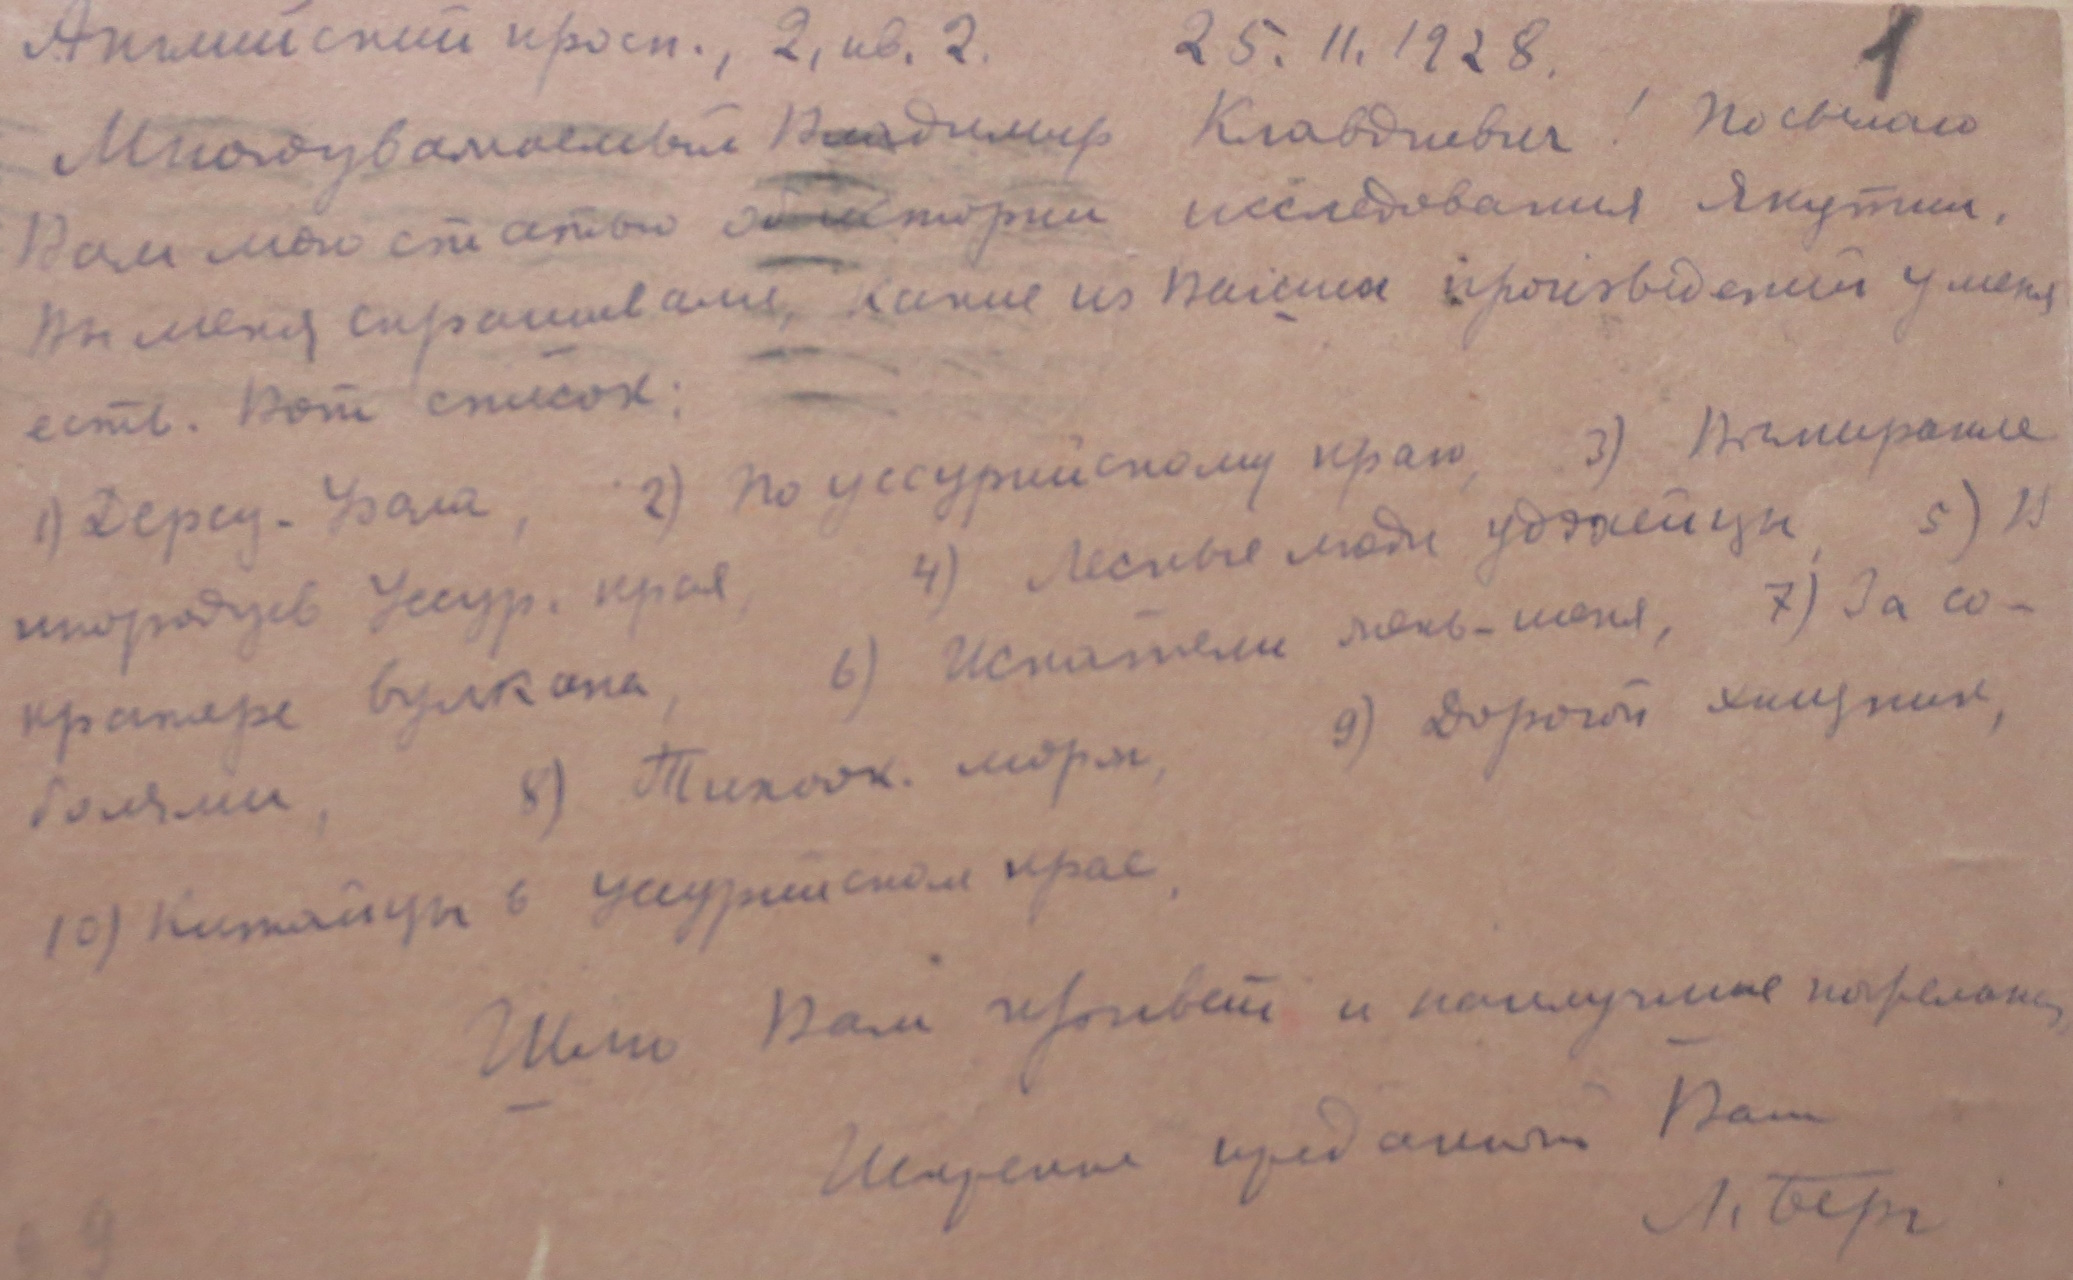 Английский просп., 2, кв. 2. 25. 11. 1928. 1
Многоуважаемый Владимир Клавдиевич! Посылаю
Вам мою статью об истории исследования Якутии.
Вы меня спрашивали, какие из Ваших произведений у меня
есть. Вот список:
1) Дерсу-Узала, 2) По уссурийскому краю, 3) Вымирание
инородцев Уссур. края, 4) Лесные люди удэхейцы, 5) В
кратере вулкана, 6) Искатели жень-шеня, 7) За со-
болями, 8) Тихоок. морж, 9) Дорогой хищник,
10) Китайцы в Уссурийском крае,
Шлю Вам привет и наилучшие пожелания
Искренне преданный Ваш
Л. Берг